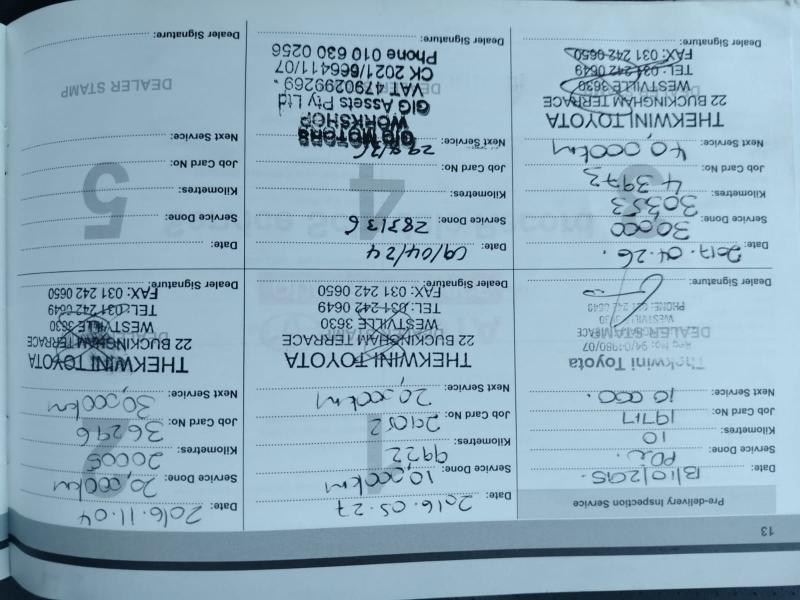 13
Pre-delivery Inspection Service
Date: 13/10/2015.
Service Done:
Kilometres: 10
Job Card No: 19717
Next Service: 10 000.
Thekwini Toyota
DEALER STAMP
Dealer Signature:
1
Date: 2016.05.27
Service Done: 10,000km
Kilometres: 9922
Job Card No:
Next Service: 20,000km
THEKWINI TOYOTA
22 BUCKINGHAM TERRACE
WESTVILLE 3630
TEL: 031 242 0649
FAX: 031 242 0650
Dealer Signature:
2
Date: 2016.11.04
Service Done: 20,000km
Kilometres: 20005
Job Card No: 36296
Next Service: 30,000km
THEKWINI TOYOTA
22 BUCKINGHAM TERRACE
WESTVILLE 3630
TEL: 031 242 0649
FAX: 031 242 0650
Dealer Signature:
3
Date: 2017.04.26.
Service Done: 30,000
Kilometres: 30353
Job Card No: 43973
Next Service: 40,000km
THEKWINI TOYOTA
22 BUCKINGHAM TERRACE
WESTVILLE 3630
TEL: 031 242 0649
FAX: 031 242 0650
Dealer Signature:
4
Date: 09/04/24
Service Done: 285136
Kilometres:
Job Card No:
Next Service:
GIG MOTORS
WORKSHOP
GIG Assets Pty Ltd
VAT 4790299269
CK 2021/666411/07
Phone 010 630 0256
Dealer Signature:
5
Date:
Service Done:
Kilometres:
Job Card No:
Next Service:
DEALER STAMP
Dealer Signature: